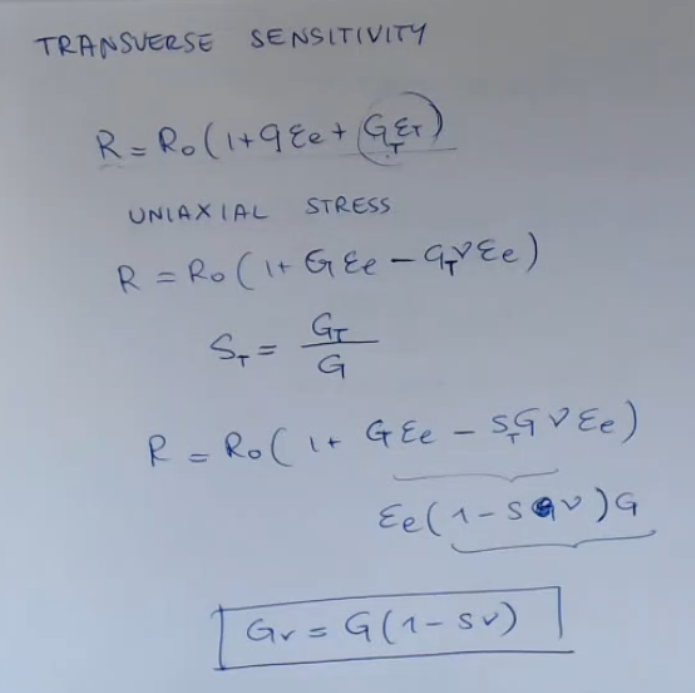 TRANSVERSE SENSITIVITY
R = R₀(1+GƐe + G_TƐ_T)
UNIAXIAL STRESS
R = R₀(1+ GƐe - G_TνƐe)
S_T = G_T / G
R = R₀(1+ GƐe - S_TGνƐe)
Ɛe(1-Sν)G
Gν = G(1-Sν)